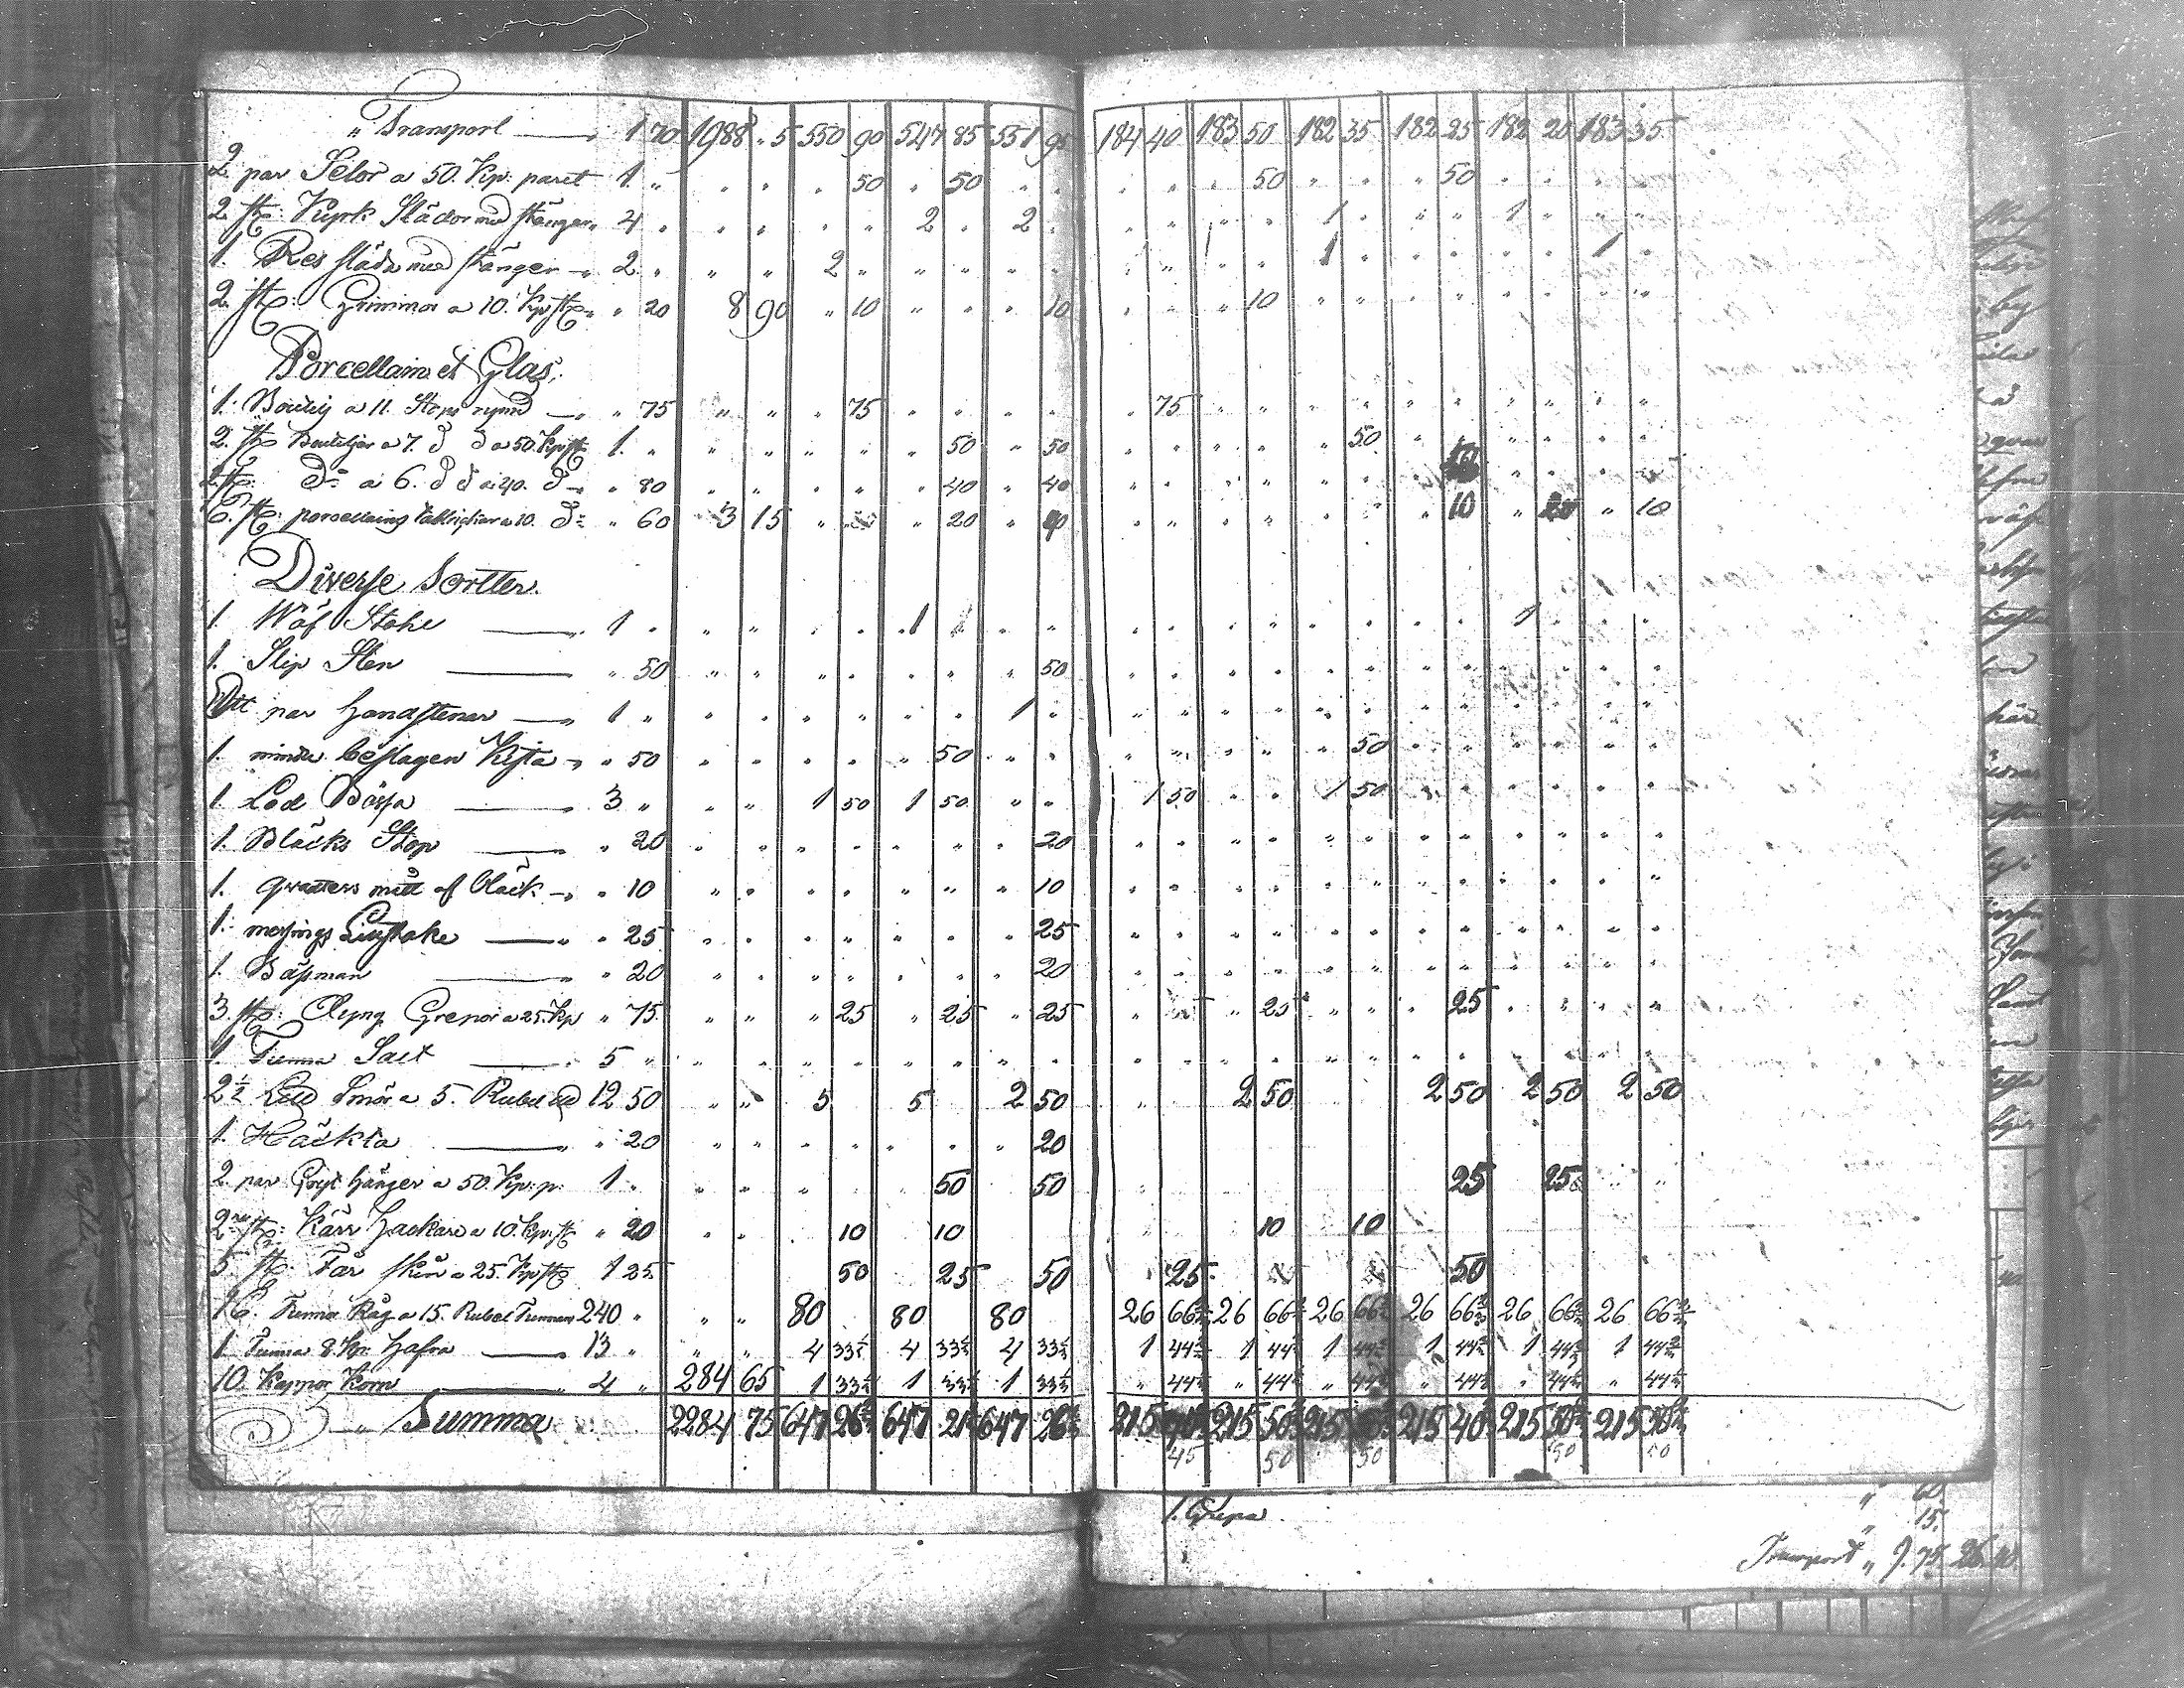 " Transport — 1 70 1988 " 5 550 90 547 85 551 95 184 40 183 50 182 35 182 25 182 20 183 35
2 par Selor a 50. Kp: paret 1 " 50 50 50 50
2 st: Kyrk Slädor med skänger 4 " 2 2 1 1
1. Res släda med skänger 2 " 2 1 1
2. st: Grimmor a 10. Kp st " 20 8 90 10 10 10
Porcellain et Glas.
1. Boutelj a 11. Stops rymd — " 75 75 75
2. st Bouteljer a 7. d d a 50. Kp st 1 " 50 50 50
2 st: do a 6. d d a 40. d " 80 40 40
6. st: porcellains tallrickar a 10. do " 60 3 15 20 10 10
Diverse Sortter.
1. Wäf Stake — 1 " 1 1
1. Slip Sten — " 50 50
Ett par Handstenar — 1 " 1
1. mindre beslagen Kista " 50 50 50
1 Lod Bössa — 3 " 1 50 1 50 1 50 1 50
1. Bläcks Stop — " 20 20
1. qvarters mått af bläck — " 10 10
1. messings Ljusstake — " 25 25
1. Bäsman — " 20 20
3. st: Dyng Grepor a 25. Kp " 75 25 25 25 25 25
1. Tunna Salt — 5 "
2½ L℔ Smör a 5. Rubel ℔ 12 50 5 5 2 50 2 50 2 50 2 50 2 50
1. Häckla — " 20 20
2 par Hänger a 50. Kp: p: 1 " 50 50 25 25
2 st: Kärr Hackor a 10. Kp: st " 20 10 10 10 10
5 st. Får skin a 25. Kp st 1 25 50 25 50 25 50
16. Tunnor Råg a 15. Rubel Tunnan 240 " 80 80 80 26 66⅔ 26 66⅔ 26 66⅔ 26 66⅔ 26 66⅔ 26 66⅔
1. Tunna 8. Kp: Hafra — 13 " 4 33⅓ 4 33⅓ 4 33⅓ 1 44 1 44 1 44 1 44 1 44 1 44
10. Kappor Korn — 4 " 284 65 1 33⅓ 1 33⅓ 1 33⅓ " 44 " 44 " 44 " 44 " 44 " 44
" Summa 2284 75 647 26 647 21 647 26 215 215 50 215 215 40 215 50 215 50
45 50 50 50 50
1. Grepa
15.
Transport " 9. 75